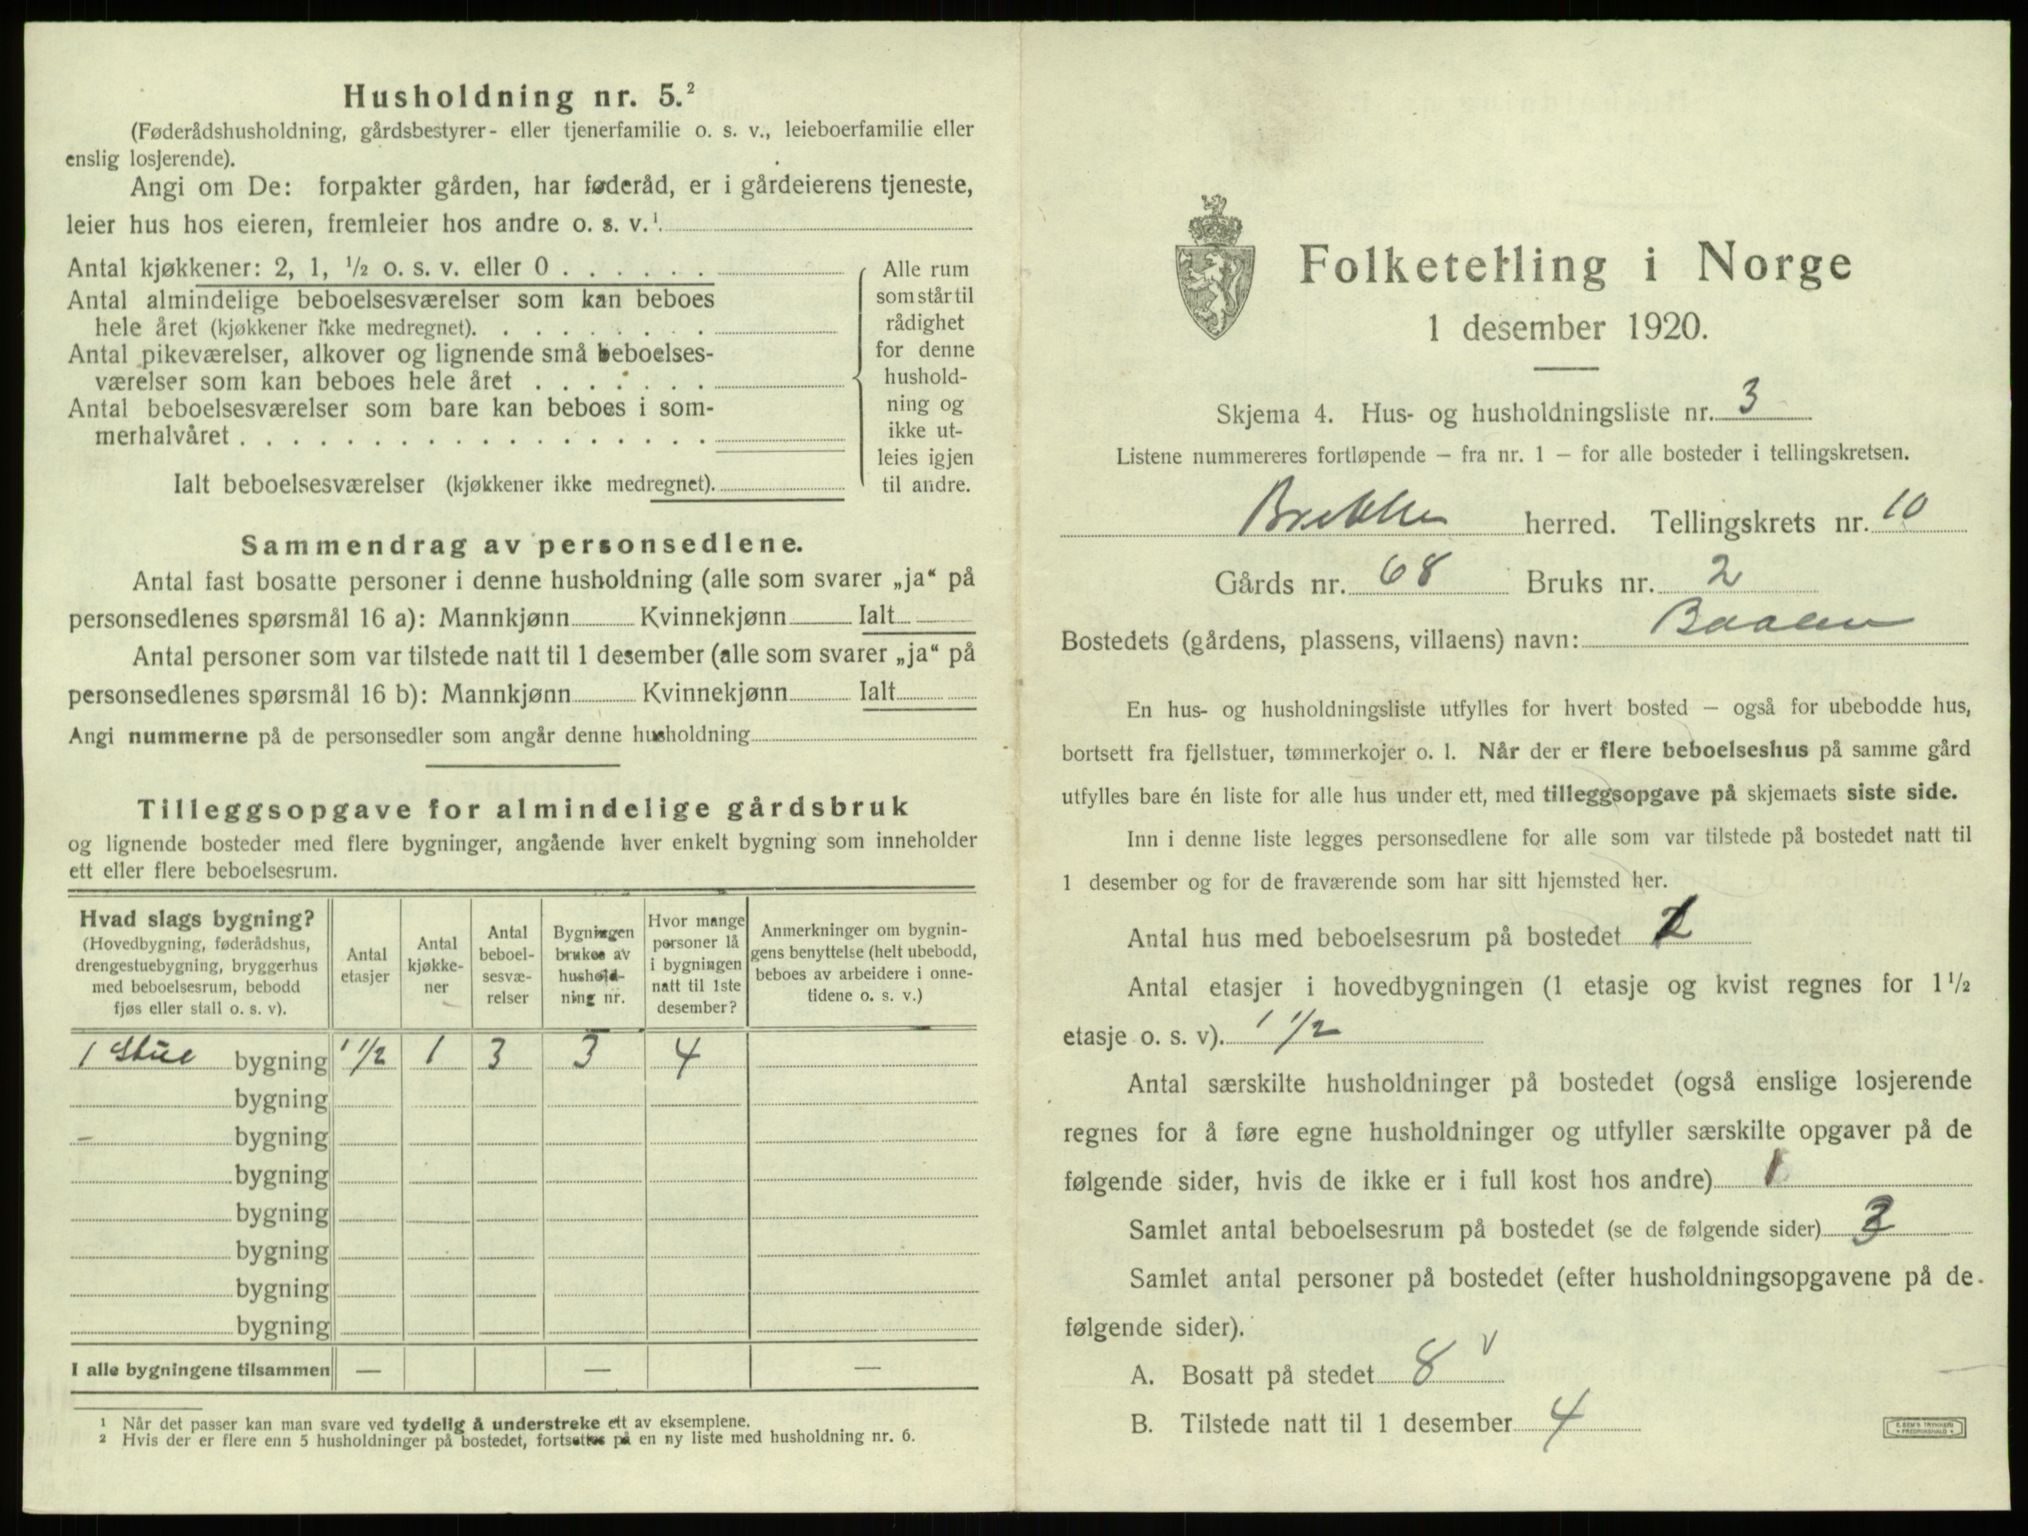 Husholdning nr. 5.²
(Føderådshusholdning, gårdsbestyrer- eller tjenerfamilie o. s. v., leieboerfamilie eller
enslig losjerende).
Angi om De: forpakter gården, har føderåd, er i gårdeierens tjeneste,
leier hus hos eieren, fremleier hos andre o. s. v.¹
Antal kjøkkener: 2, 1, ½ o. s. v. eller 0
Antal almindelige beboelsesværelser som kan beboes
hele året (kjøkkener ikke medregnet).
Antal pikeværelser, alkover og lignende små beboelses-
værelser som kan beboes hele året
Antal beboelsesværelser som bare kan beboes i som-
merhalvåret
Ialt beboelsesværelser (kjøkkener ikke medregnet).
Alle rum
som står til
rådighet
for denne
hushold-
ning og
ikke ut-
leies igjen
til andre.
Sammendrag av personsedlene.
Antal fast bosatte personer i denne husholdning (alle som svarer „ja“ på
personsedlenes spørsmål 16 a): Mannkjønn Kvinnekjønn Ialt
Antal personer som var tilstede natt til 1 desember (alle som svarer „ja“ på
personsedlenes spørsmål 16 b): Mannkjønn Kvinnekjønn Ialt
Angi nummerne på de personsedler som angår denne husholdning
Tilleggsopgave for almindelige gårdsbruk
og lignende bosteder med flere bygninger, angående hver enkelt bygning som inneholder
ett eller flere beboelsesrum.
Hvad slags bygning?
(Hovedbygning, føderådshus,
drengestuebygning, bryggerhus
med beboelsesrum, bebodd
fjøs eller stall o. s. v).
Antal
etasjer
Antal
kjøkke-
ner
Antal
beboel-
sesvæ-
relser
Bygningen
brukes av
hushold-
ning nr.
Hvor mange
personer lå
i bygningen
natt til 1ste
desember?
Anmerkninger om bygnin-
gens benyttelse (helt ubebodd,
beboes av arbeidere i onne-
tidene o. s. v.)
1 Stue bygning 1 ½ 1 3 3 4
bygning
bygning
bygning
bygning
bygning
bygning
bygning
I alle bygningene tilsammen — — —
¹ Når det passer kan man svare ved tydelig å understreke ett av eksemplene.
² Hvis der er flere enn 5 husholdninger på bostedet, fortsettes på en ny liste med husholdning nr. 6.
Folketelling i Norge
1 desember 1920.
Skjema 4. Hus- og husholdningsliste nr. 3
Listene nummereres fortløpende – fra nr. 1 – for alle bosteder i tellingskretsen.
Brekke herred. Tellingskrets nr. 10
Gårds nr. 68 Bruks nr. 2
Bostedets (gårdens, plassens, villaens) navn: Baalen
En hus- og husholdningsliste utfylles for hvert bosted – også for ubebodde hus,
bortsett fra fjellstuer, tømmerkojer o. l. Når der er flere beboelseshus på samme gård
utfylles bare én liste for alle hus under ett, med tilleggsopgave på skjemaets siste side.
Inn i denne liste legges personsedlene for alle som var tilstede på bostedet natt til
1 desember og for de fraværende som har sitt hjemsted her.
Antal hus med beboelsesrum på bostedet
Antal etasjer i hovedbygningen (1 etasje og kvist regnes for 1 ½
etasje o. s. v). 1 ½
Antal særskilte husholdninger på bostedet (også enslige losjerende
regnes for å føre egne husholdninger og utfyller særskilte opgaver på de
følgende sider, hvis de ikke er i full kost hos andre) 1
Samlet antal beboelsesrum på bostedet (se de følgende sider) 3
Samlet antal personer på bostedet (efter husholdningsopgavene på de
følgende sider).
A. Bosatt på stedet 8 v
B. Tilstede natt til 1 desember 4
E. SEM'S TRYKKERI
• FREDRIKSHALD •